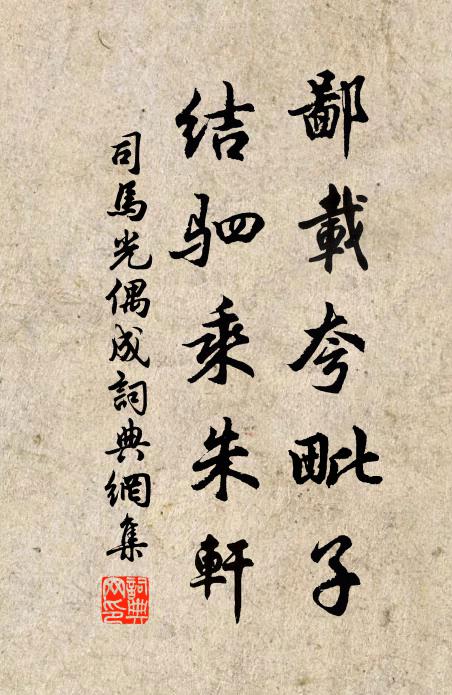 鄙載夸毗子
结驷乘朱軒
司馬光偶成詞典網集
詞典網印